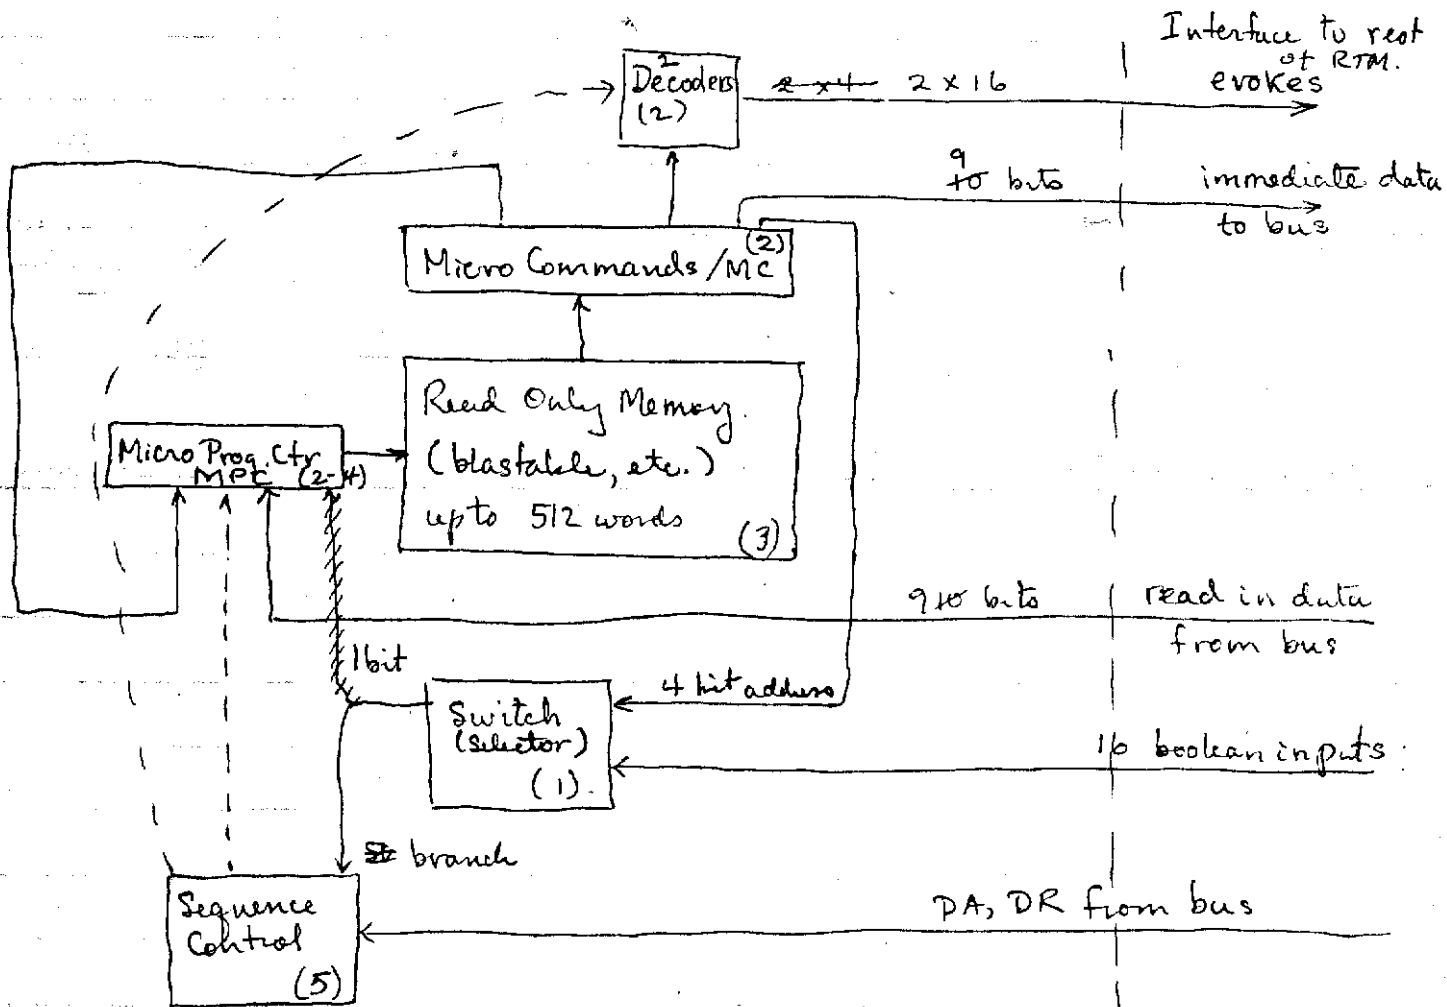 Interface to rest
of RTM.
2
Decoders
(2)
2 x 4 2 x 16
evokes
9
10 bits
immediate data
to bus
(2)
Micro Commands/MC
Read Only Memory.
(blastable, etc.)
up to 512 words
(3)
Micro Prog. Ctr
MPC (2-4)
9 10 bits
read in data
from bus
1 bit
4 bit address
Switch
(selector)
(1).
16 boolean inputs
branch
Sequence
Control
(5)
DA, DR from bus